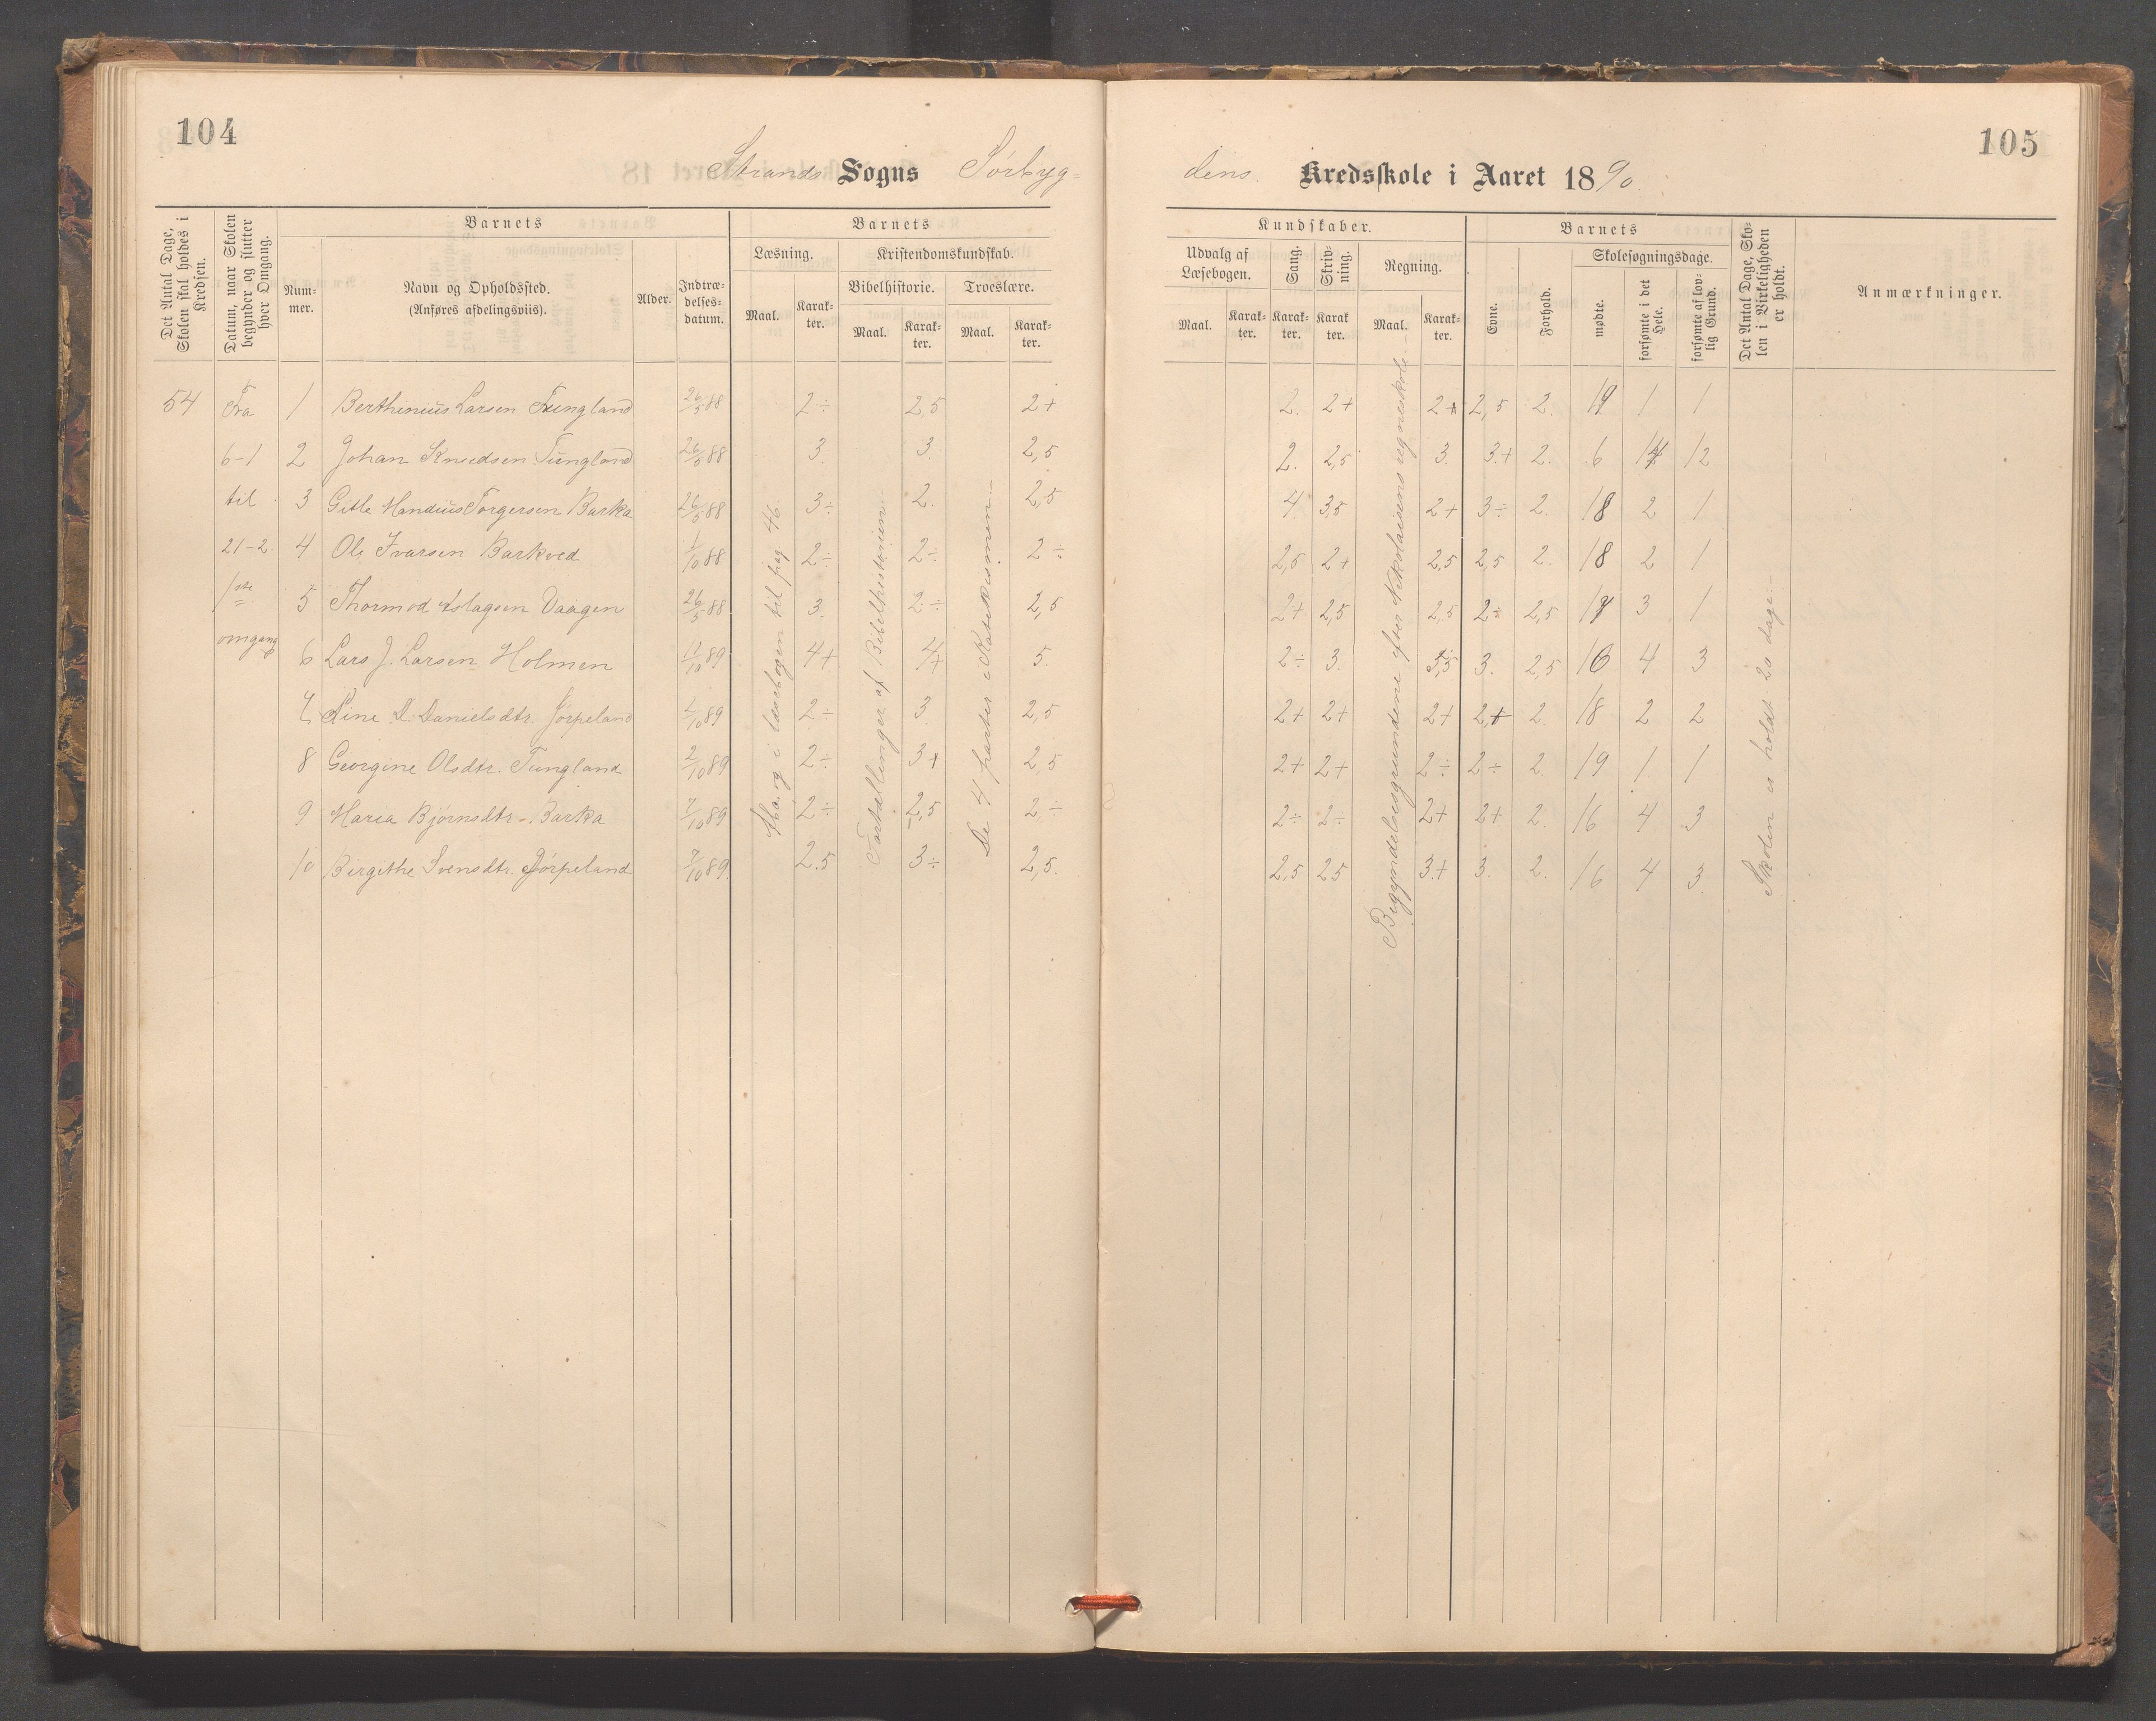 104
105
Strands Sogns Sörbyg=
dens. Kredsskole i Aaret 1890.
Det Antal Dage, Skolen skal holdes i Kredsen.
Datum, naar Skolen begynder og slutter hver Omgang.
Barnets
Num-mer.
Navn og Opholdssted.
(Anføres afdelingsviis).
Alder.
Indtræ-delses-datum.
Barnets
Læsning.
Maal.
Karak-ter.
Kristendomskundskab.
Bibelhistorie.
Maal.
Karak-ter.
Troeslære.
Maal.
Karak-ter.
Kundskaber.
Udvalg af Læsebogen.
Maal.
Karak-ter.
Sang.
Karak-ter.
Skriv-ning.
Karak-ter.
Regning.
Maal.
Karak-ter.
Barnets
Evne.
Forhold.
Skolesøgningsdage.
mødte.
forsømte i det Hele.
forsømte af lov-lig Grund.
Det Antal Dage, Sko-len i Virkeligheden er holdt.
Anmærkninger.
54 Fra 1 Berthinius Larsen Tungland 26/5 88 2÷ 2,5 2+ 2. 2+ 2+ 2,5 2. 19 1 1
6-1 2 Johan Knudsen Tungland 26/5 88 3. 3. 2,5 2. 2,5 3. 3.+ 2. 6 14 12
til 3 Gitle Mandius Torgersen Barka 26/5 88 3÷ 2. 2,5 4 3,5 2+ 3÷ 2. 18 2 1
21-2. 4 Ole Ivarsen Barkved 1/10 88 2÷ 2÷ 2÷ 2,5 2+ 2,5 2,5 2. 18 2 1
1ste 5 Thormod Aslagsen Vaagen 26/5 88 3. 2÷ 2,5 2+ 2,5 2,5 2÷ 2,5 17 3 1
omgang 6 Lars J. Larsen Holmen 11/10 89 4+ 4+ 5. 2÷ 3. 3,5 3. 2,5 16 4 3
7 Line D. Danielsdtr Jörpeland 2/10 89 2÷ 3 2,5 2+ 2+ 2+ 2,+ 2. 18 2 2
8 Georgine Olsdtr. Tungland 2/10 89 2÷ 3+ 2,5 2+ 2+ 2÷ 2÷ 2. 19 1 1
9 Maria Björnsdtr. Barka 7/10 89 2÷ 2,5 2,÷ 2÷ 2÷ 2+ 2+ 2. 16 4 3
10 Birgithe Svensdtr. Jörpeland 7/10 89. 2.5 3÷ 2,5. 2,5 25 3.+ 3. 2. 16 4 3.
Aba. og i læsebogen til pag 46.
Fortællinger af Bibelhistorien.
De 4 parter i Katekismen.
Begyndelsesgrundene efter Nikolaisens regneskole.
Skolen er holdt 20 dage.